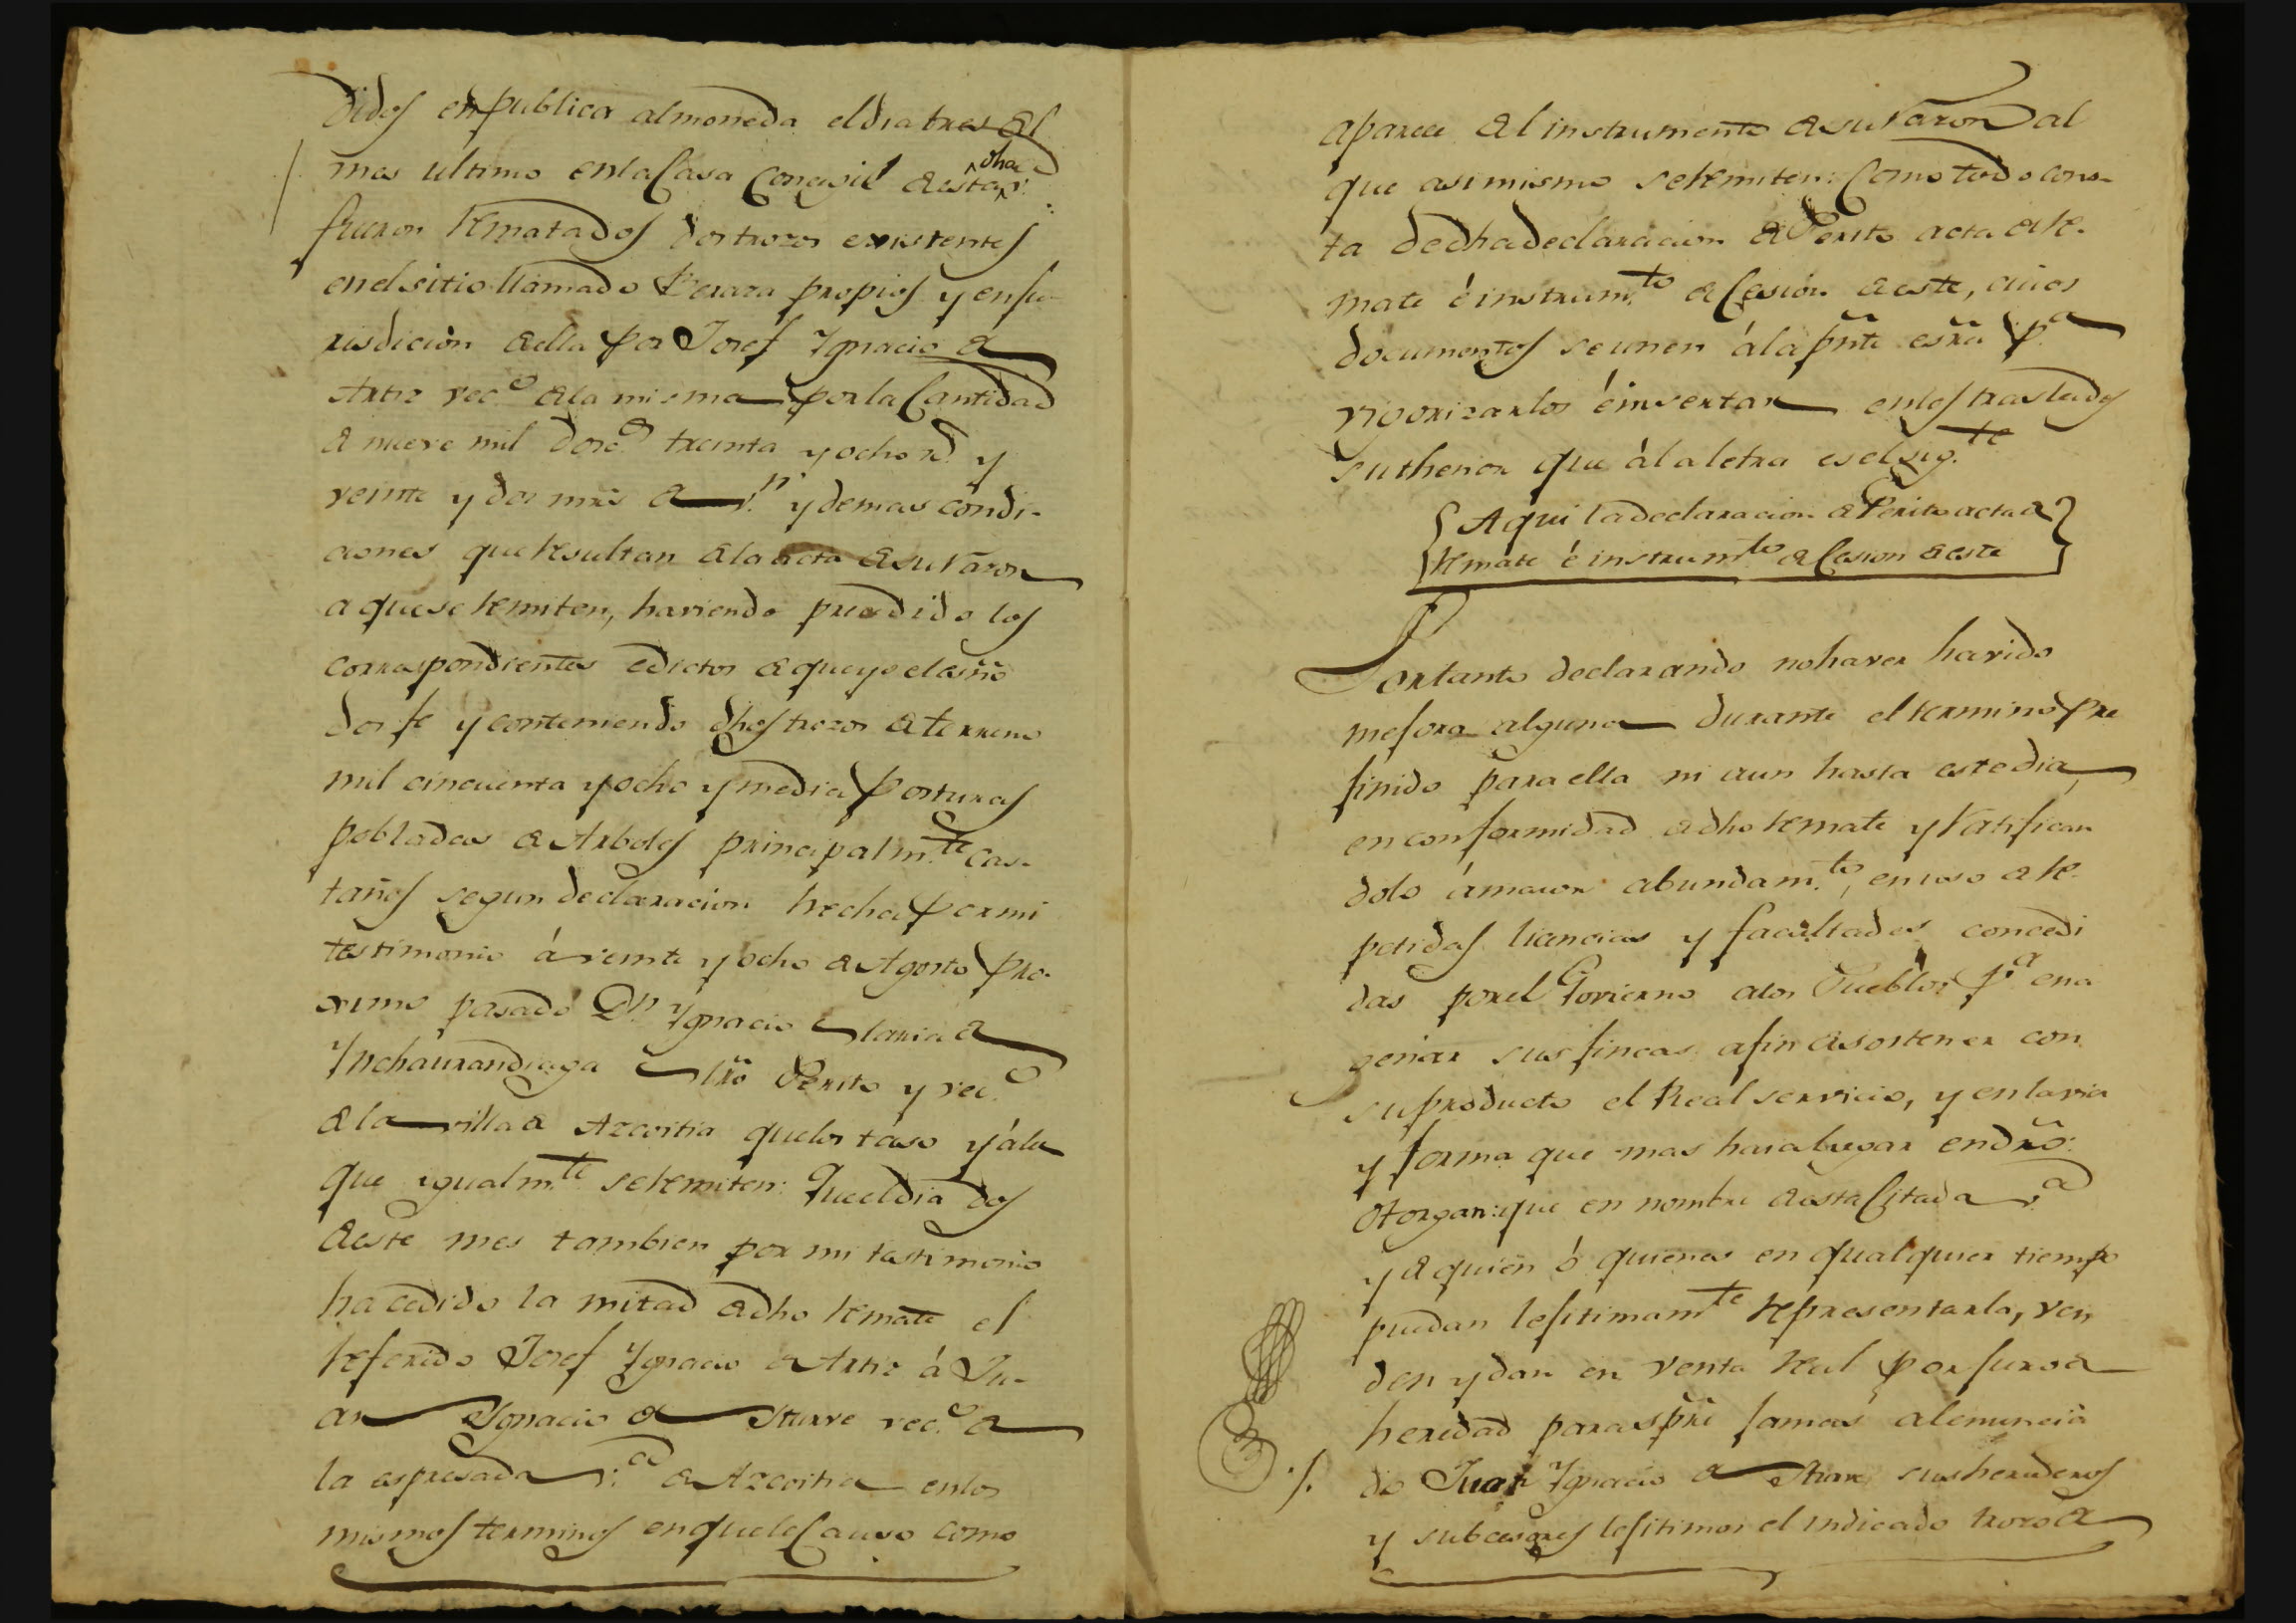 didos en publica almoneda el dia tres del
mes ultimo en la Casa Concegil de esta dha v.ª
fueron Rematados dos trozos existentes
en el sitio llamado Peraza propios y en ju-
risdicion de ella por Josef Ygnacio de
Artiz vec.º de la misma por la Cantidad
de nueve mil dosc.s treinta y ocho r.s y
veinte y dos mrs de v.n y demas condi-
ciones que Resultan de la acta de su razon
a que se Remiten, haviendo precedido los
correspondientes edictos de que yo el esño
doi fe y conteniendo dhos trozos de terreno
mil cincuenta y ocho y media Posturas
pobladas de Arboles principalm.te Cas-
taños segun declaracion hecha por mi
testimonio á veinte y ocho de Agosto pro-
ximo pasado Dn Ygnacio Maria de
Ynchaurandiaga Mro Perito y vec.º
de la villa de Azcoitia que los tasó y á la
que igualm.te se Remiten: Que el dia dos
de este mes tambien por mi testimonio
ha cedido la mitad de dho Remate el
Referido Josef Ygnacio de Artiz á Ju-
an Ygnacio de Yturve vec.º de
la espresada v.ª de Azcoitia en los
mismos terminos en que le Causo como
aparece del instrumento de su razon al
que asimismo se Remiten: Como todo cons-
ta de dha declaracion de Perito acta de Re-
mate é instrum.to de Cesión de este, cuios
documentos se unen á la pñte esrã p.ª
vigorizarlos é insertar en los traslados
su thenor que á la letra es el sig.te
{Aqui la declaracion de Perito acta de}
{Remate é instrum.to de Cesion de este}
Por tanto declarando no haver havido
mejora alguna durante el termino pre
finido para ella ni aun hasta este dia,
en conformidad de dho Remate y Ratifican
dolo á maior abundam.to, en uso de Re-
petidas licencias y facultades concedi
das por el Govierno a los Pueblos p.ª ena
genar sus fincas a fin de sostener con
su producto el Real servicio, y en la via
y forma que mas haia lugar en dro:
Otorgan: que en nombre de esta Citada v.ª
y de quien ó quienes en qualquier tiempo
puedan lejitimam.te Representarla, ven
den y dan en venta Real por juro de
heredad para spre jamas al enuncia
do Juan Ygnacio de Yturve sus herederos
y subcesores lejitimos el indicado trozo de